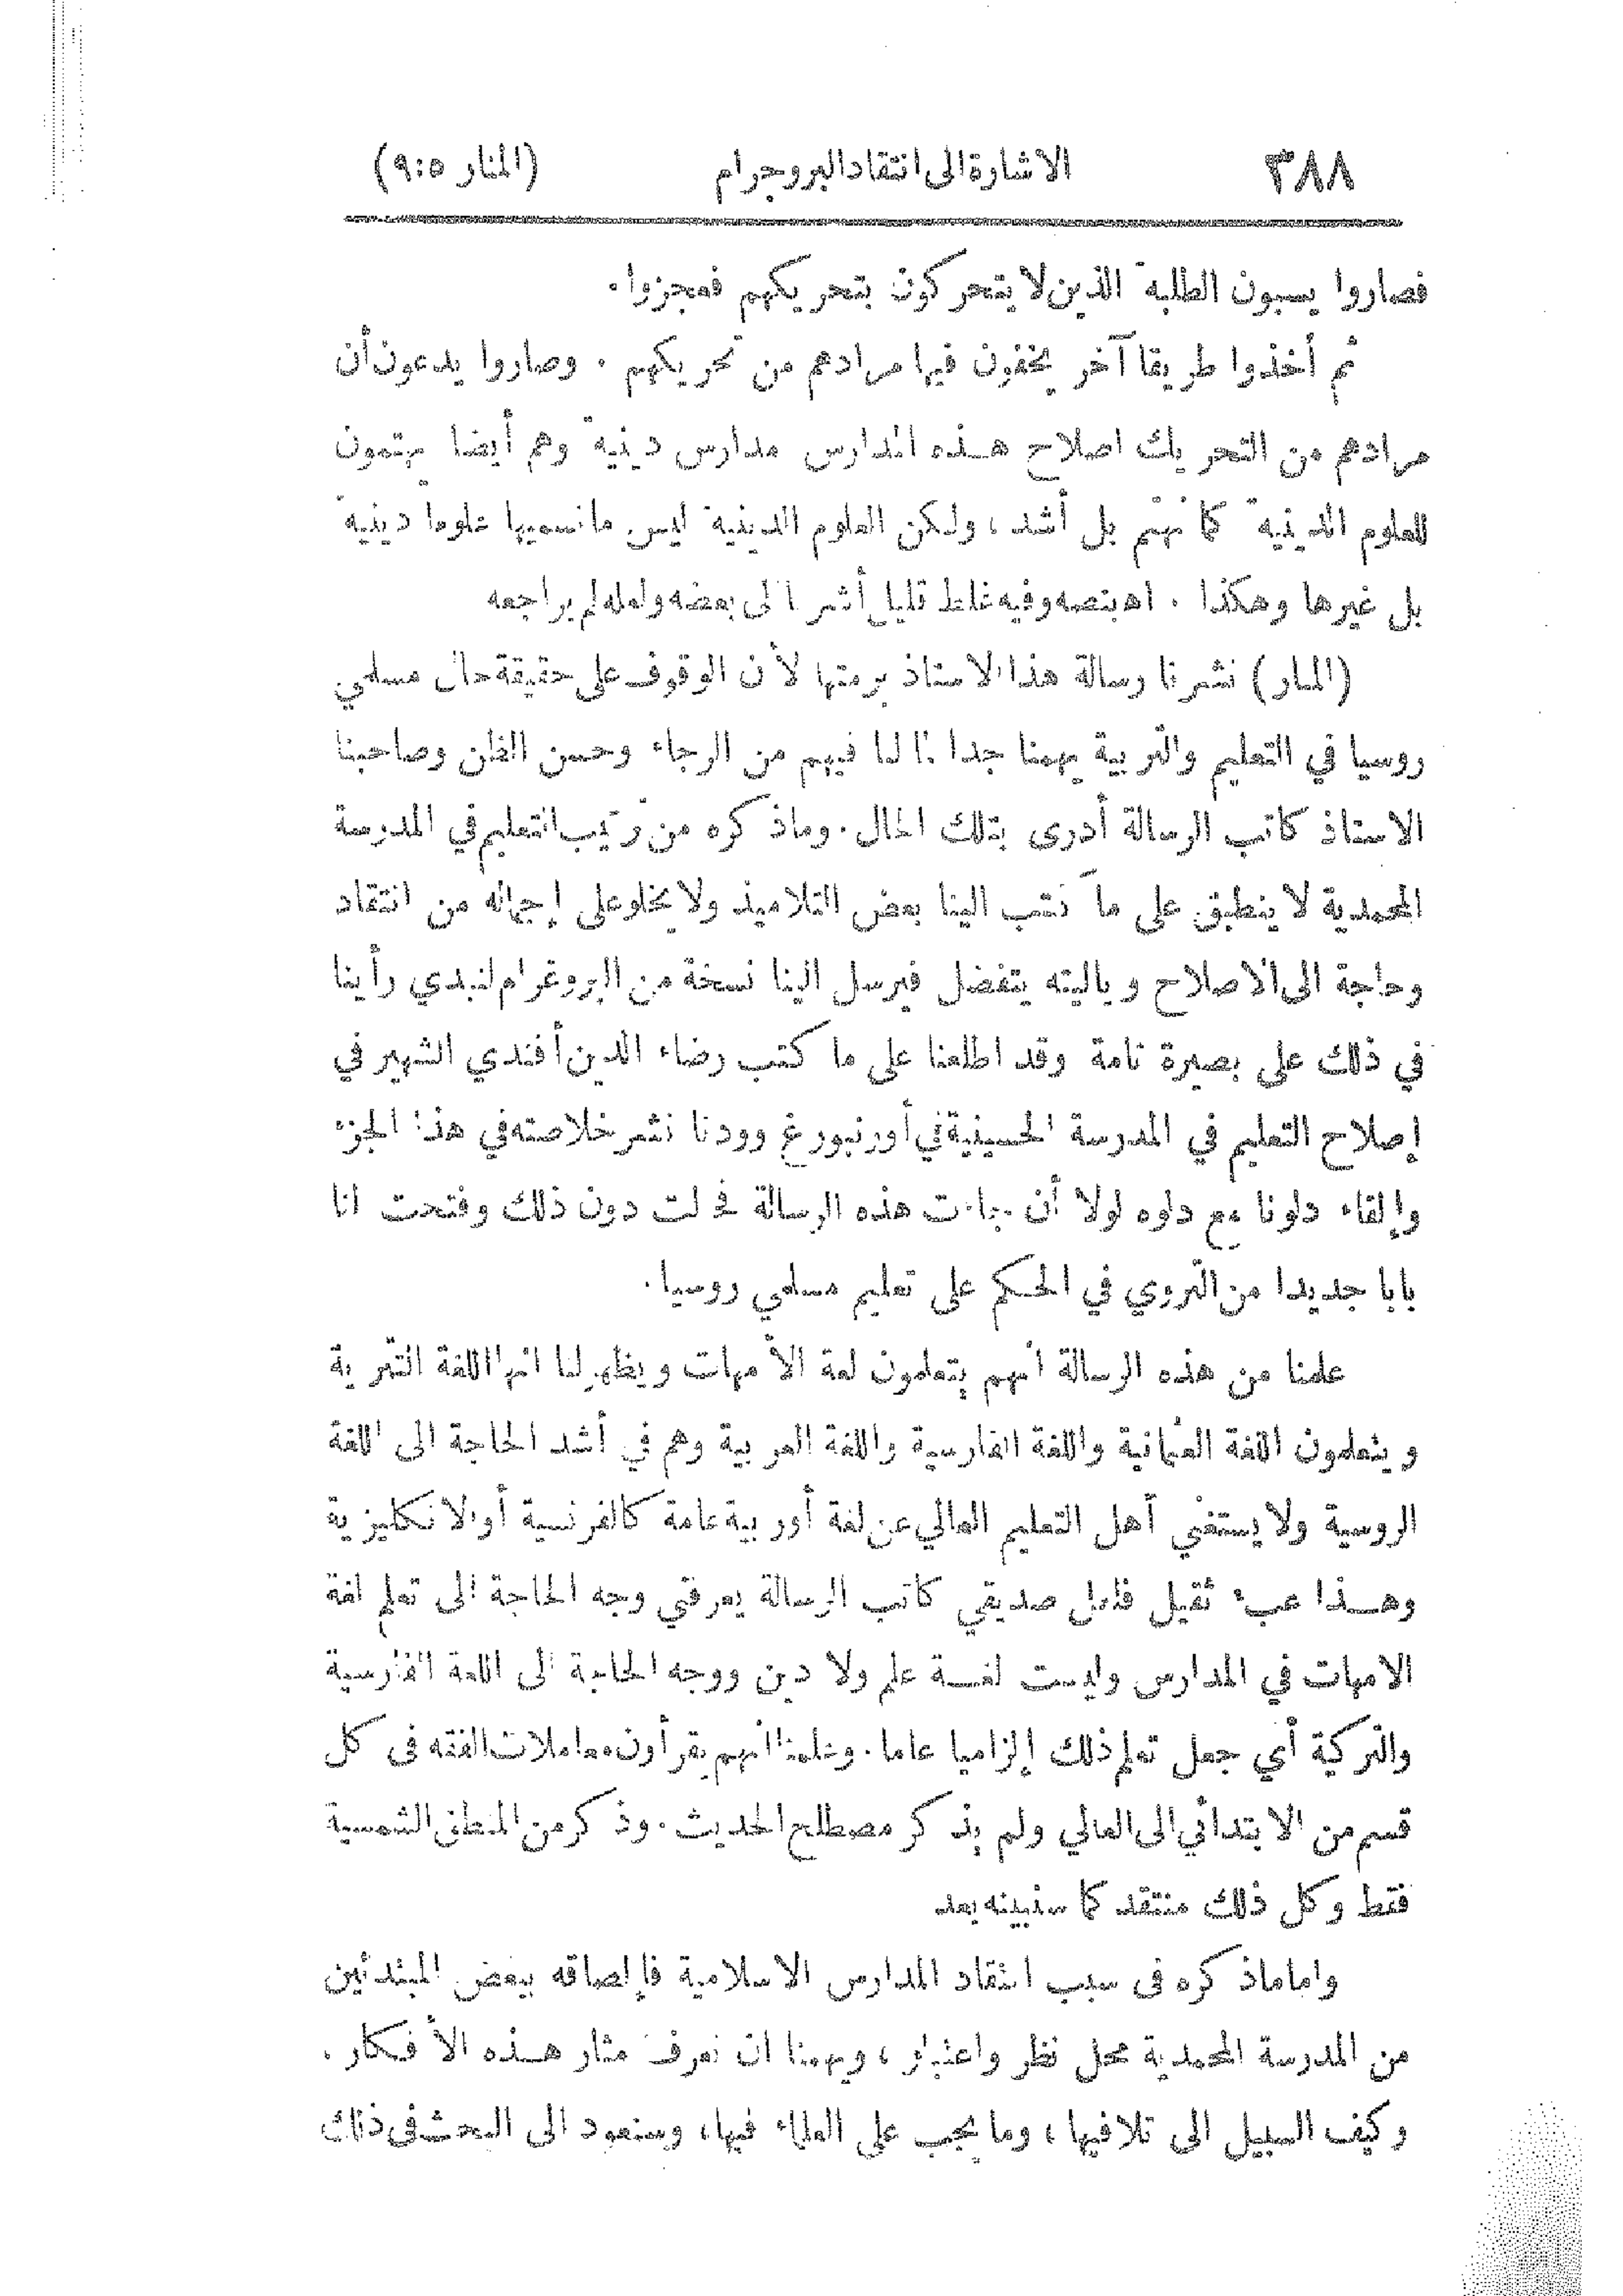 ٣٨٨ الاشارة الى انتقاد البروجرام (المنار ٩:٥)
فصاروا يسبون الطلبة الذين لا يتحركون بتحريكهم فعجزوا.
ثم أخذوا طريقا آخر يخفون فيها مرادهم من تحريكهم . وصاروا يدعون أن
مرادهم من التحريك اصلاح هذه المدارس مدارس دينية وهم أيضا يهتمون
للعلوم الدينية كما نهتم بل أشد ، ولكن العلوم الدينية ليس ما نسميها علوما دينية
بل غيرها وهكذا . اه بنصه وفيه غلط قليل أشرنا الى بعضه ولعله لم يراجعه
(المنار) نشرنا رسالة هذا الاستاذ برمتها لأن الوقوف على حقيقة حال مسلمي
روسيا في التعليم والتربية يهمنا جدا لما لنا فيهم من الرجاء وحسن الظن وصاحبنا
الاستاذ كاتب الرسالة أدرى بتلك الحال . وما ذكره من ترتيب التعليم في المدرسة
المحمدية لا ينطبق على ما كتب الينا بعض التلاميذ ولا يخلو على إجماله من انتقاد
وحاجة الى الاصلاح وياليته يتفضل فيرسل الينا نسخة من البروغرام لنبدي رأينا
في ذلك على بصيرة تامة وقد اطلعنا على ما كتب رضاء الدين أفندي الشهير في
إصلاح التعليم في المدرسة الحسينية في أورنبورغ وودنا نشر خلاصته في هذا الجزء
وإلقاء دلونا مع دلوه لولا أن جاءت هذه الرسالة فحالت دون ذلك وفتحت لنا
بابا جديدا من التروي في الحكم على تعليم مسلمي روسيا .
علمنا من هذه الرسالة انهم يتعلمون لغة الأمهات ويظهر لنا انها اللغة التترية
ويتعلمون اللغة العثمانية واللغة الفارسية واللغة العربية وهم في أشد الحاجة الى اللغة
الروسية ولا يستغني أهل التعليم العالي عن لغة أوربية عامة كالفرنسية أو الانكليزية
وهذا عبء ثقيل فلعل صديقي كاتب الرسالة يعرفني وجه الحاجة الى تعلم لغة
الامهات في المدارس وليست لغة علم ولا دين ووجه الحاجة الى اللغة الفارسية
والتركية أي جعل تعلم ذلك إلزاميا عاما . وعلمنا انهم يقرأون معاملات الفقه في كل
قسم من الابتدائي الى العالي ولم يذكر مصطلح الحديث . وذكر من المنطق الشمسية
فقط وكل ذلك منتقد كما سنبينه بعد
واما ما ذكره في سبب انتقاد المدارس الاسلامية فإلصاقه ببعض المبتدئين
من المدرسة المحمدية محل نظر واعتبار ، ويهمنا ان نعرف مثار هذه الأفكار .
وكيف السبيل الى تلافيها ، وما يجب على العلماء فيها ، وسنعود الى البحث في ذلك